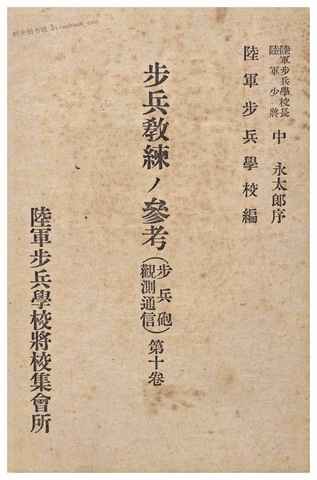 陸軍步兵學校長
陸軍少將
中 永太郎序
陸軍步兵學校編
步兵教練ノ參考
(步兵砲
觀測通信)
第十卷
陸軍步兵學校將校集會所